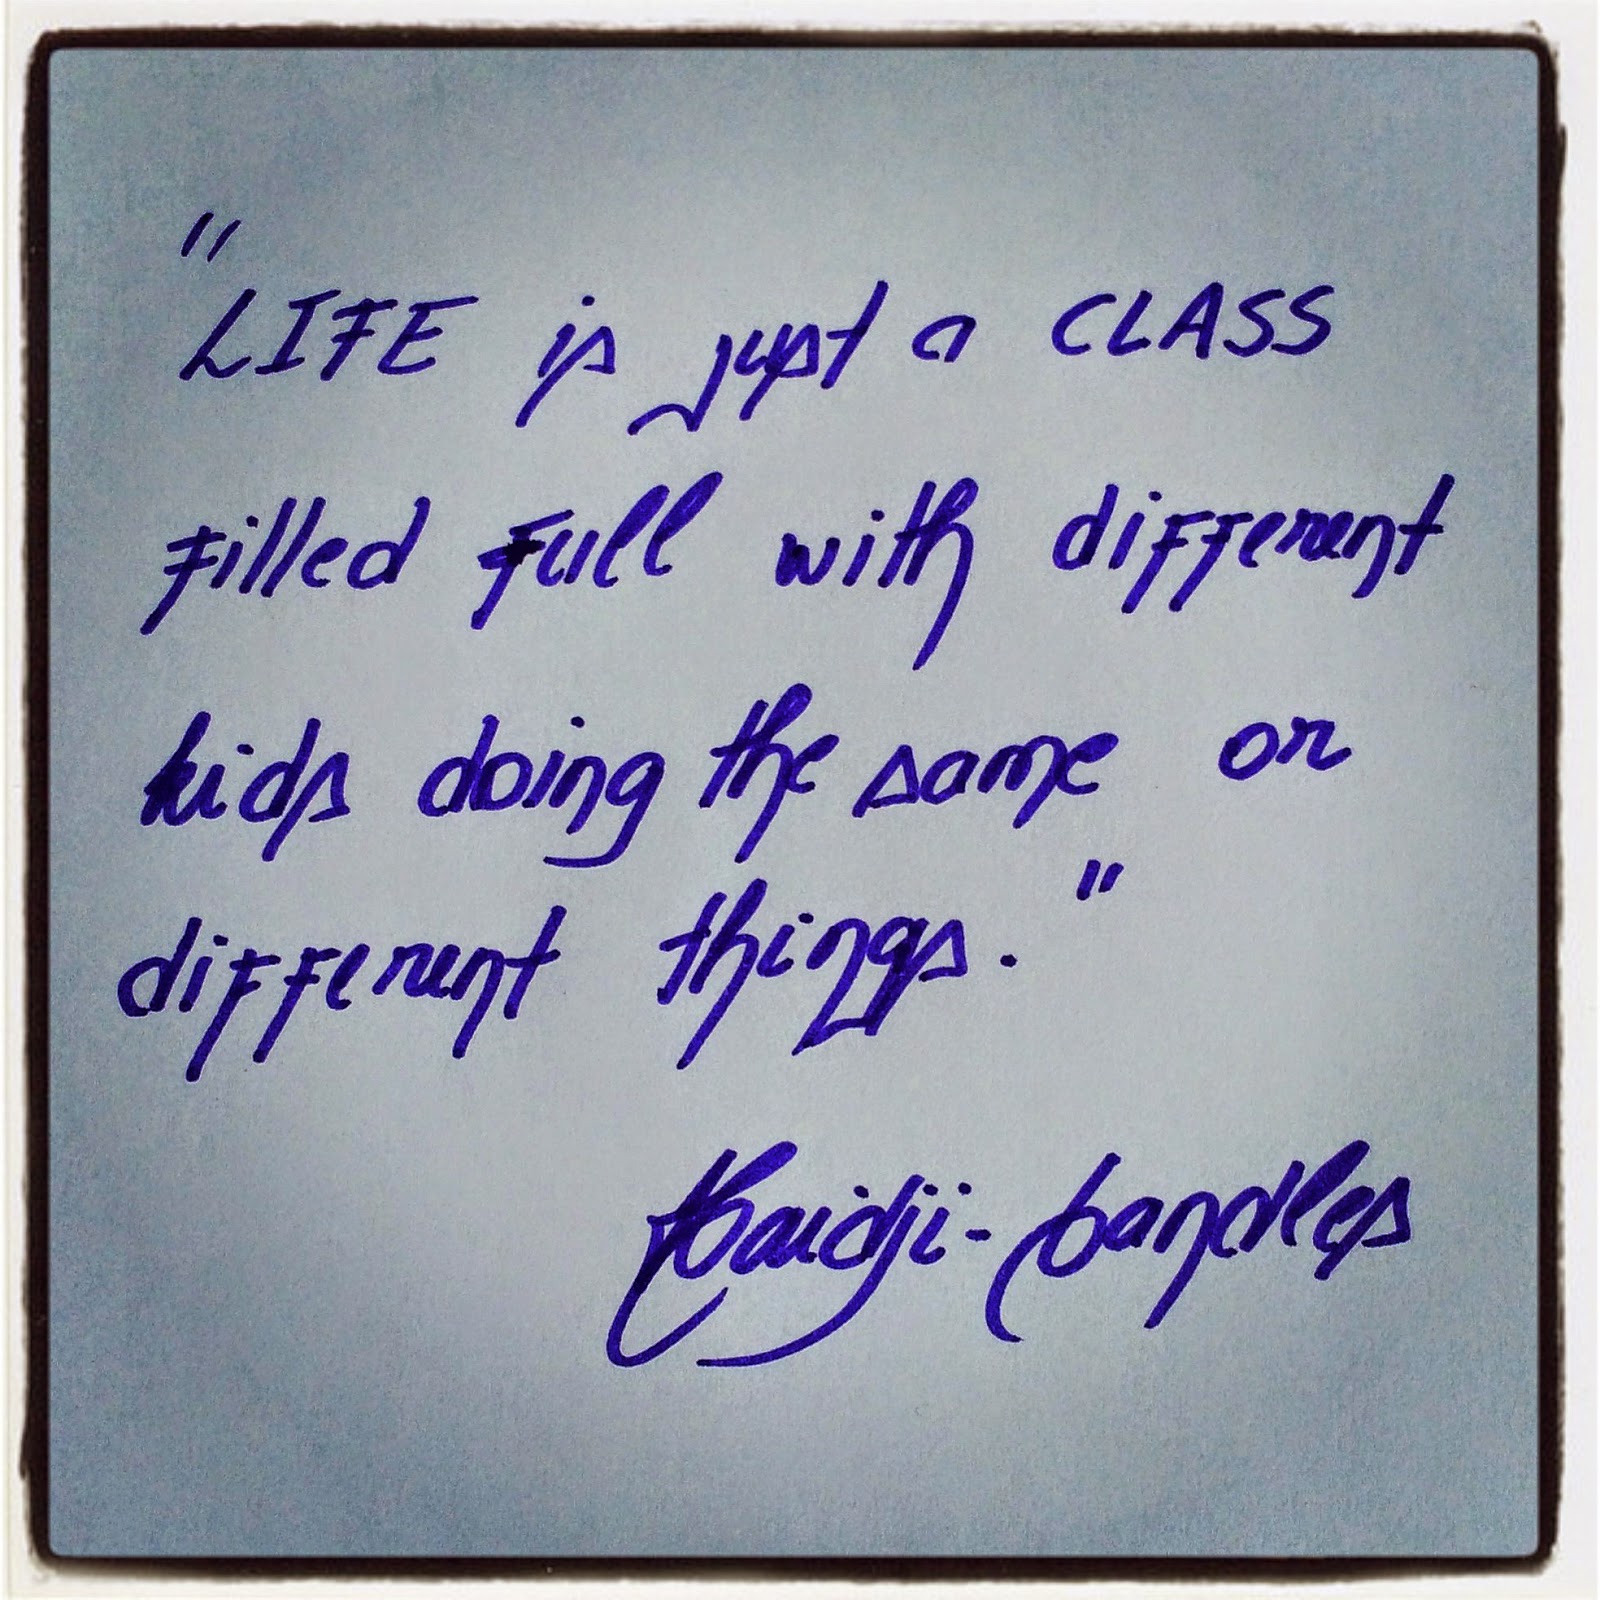 "
LIFE is just a CLASS
filled full with different
kids doing the same or
different things."